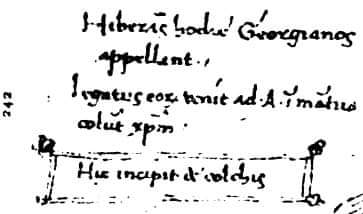 Hiberiā hodie Georgianos
appellant.
legatus eoꝝ venit ad .A. ī
colūt xp̄m
242
Hic incipit de colchis